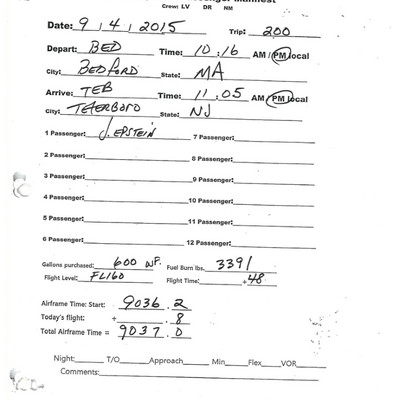 Passenger Manifest
Crew: LV DR NM
Date: 9 / 4 / 2015 Trip: 200
Depart: BED Time: 10 : 16 AM / PM local
City: BEDFORD State: MA
Arrive: TEB Time: 11 : 05 AM / PM local
City: TETERBORO State: NJ
1 Passenger: J. EPSTEIN 7 Passenger:
2 Passenger: 8 Passenger:
3 Passenger: 9 Passenger:
4 Passenger: 10 Passenger:
5 Passenger: 11 Passenger:
6 Passenger: 12 Passenger:
Gallons purchased: 600 Fuel Burn lbs. 3391
Flight Level: FL160 Flight Time: +48
Airframe Time: Start: 9036.2
Today's flight: + .8
Total Airframe Time = 9037.0
Night: T/O Approach Min Flex VOR
Comments: